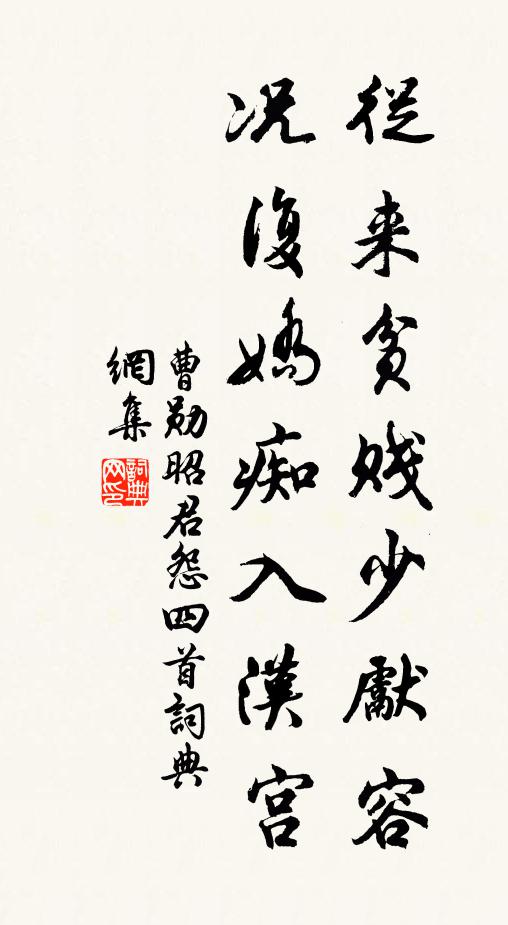 從来貧賤少獻容
況復嬌痴入漢宫
曹勛昭君怨四首詞典
網集
詞典
网印